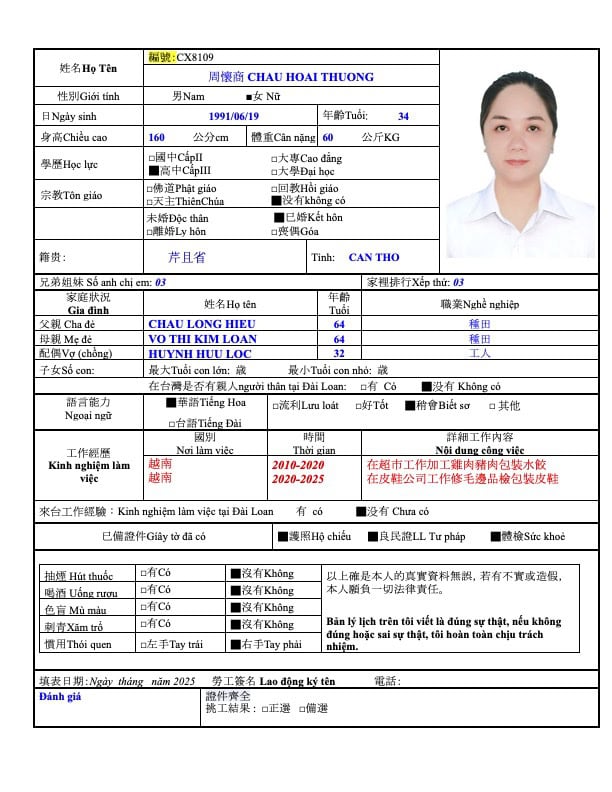 姓名Họ Tên
編號:CX8109
周懷商 CHAU HOAI THUONG
性別Giới tính 男Nam ■女 Nữ
日Ngày sinh 1991/06/19 年齡Tuổi: 34
身高Chiều cao 160 公分cm 體重Cân nặng 60 公斤KG
學歷Học lực
□國中CấpII □大專Cao đẳng
■高中CấpIII □大學Đại học
宗教Tôn giáo
□佛道Phật giáo □回教Hồi giáo
□天主ThiênChúa ■没有không có
未婚Độc thân ■已婚Kết hôn
□離婚Ly hôn □喪偶Góa
籍贵: 芹且省 Tỉnh: CAN THO
兄弟姐妹 Số anh chị em: 03 家裡排行Xếp thứ: 03
家庭狀況 Gia đình 姓名Họ tên 年齡 Tuổi 職業Nghề nghiệp
父親 Cha đẻ CHAU LONG HIEU 64 種田
母親 Mẹ đẻ VO THI KIM LOAN 64 種田
配偶Vợ (chồng) HUYNH HUU LOC 32 工人
子女Số con: 最大Tuổi con lớn: 歲 最小Tuổi con nhỏ: 歲
在台灣是否有親人người thân tại Đài Loan: □有 Có ■没有 Không có
語言能力
Ngoại ngữ
■華語Tiếng Hoa □流利Lưu loát □好Tốt ■稍會Biết sơ □ 其他
□台語Tiếng Đài
工作經歷
Kinh nghiệm làm việc
國別 時間 詳細工作內容
Nơi làm việc Thời gian Nội dung công việc
越南 2010-2020 在超市工作加工雞肉豬肉包裝水餃
越南 2020-2025 在皮鞋公司工作修毛邊品檢包裝皮鞋
來台工作經驗: Kinh nghiệm làm việc tại Đài Loan 有 có ■没有 Chưa có
已備證件Giây tờ đã có ■護照Hộ chiếu ■良民證LL Tư pháp ■體檢Sức khoẻ
抽煙 Hút thuốc □有Có ■沒有Không
喝酒 Uống rượu □有Có ■沒有Không
色盲 Mù màu □有Có ■沒有Không
刺青Xăm trổ □有Có ■沒有Không
慣用Thói quen □左手Tay trái ■右手Tay phải
以上確是本人的真實資料無誤, 若有不實或造假,
本人願負一切法律責任。
Bản lý lịch trên tôi viết là đúng sự thật, nếu không
đúng hoặc sai sự thật, tôi hoàn toàn chịu trách
nhiệm.
填表日期:Ngày tháng năm 2025 勞工簽名 Lao động ký tên 電話:
Đánh giá
證件齊全
挑工結果: □正選 □備選